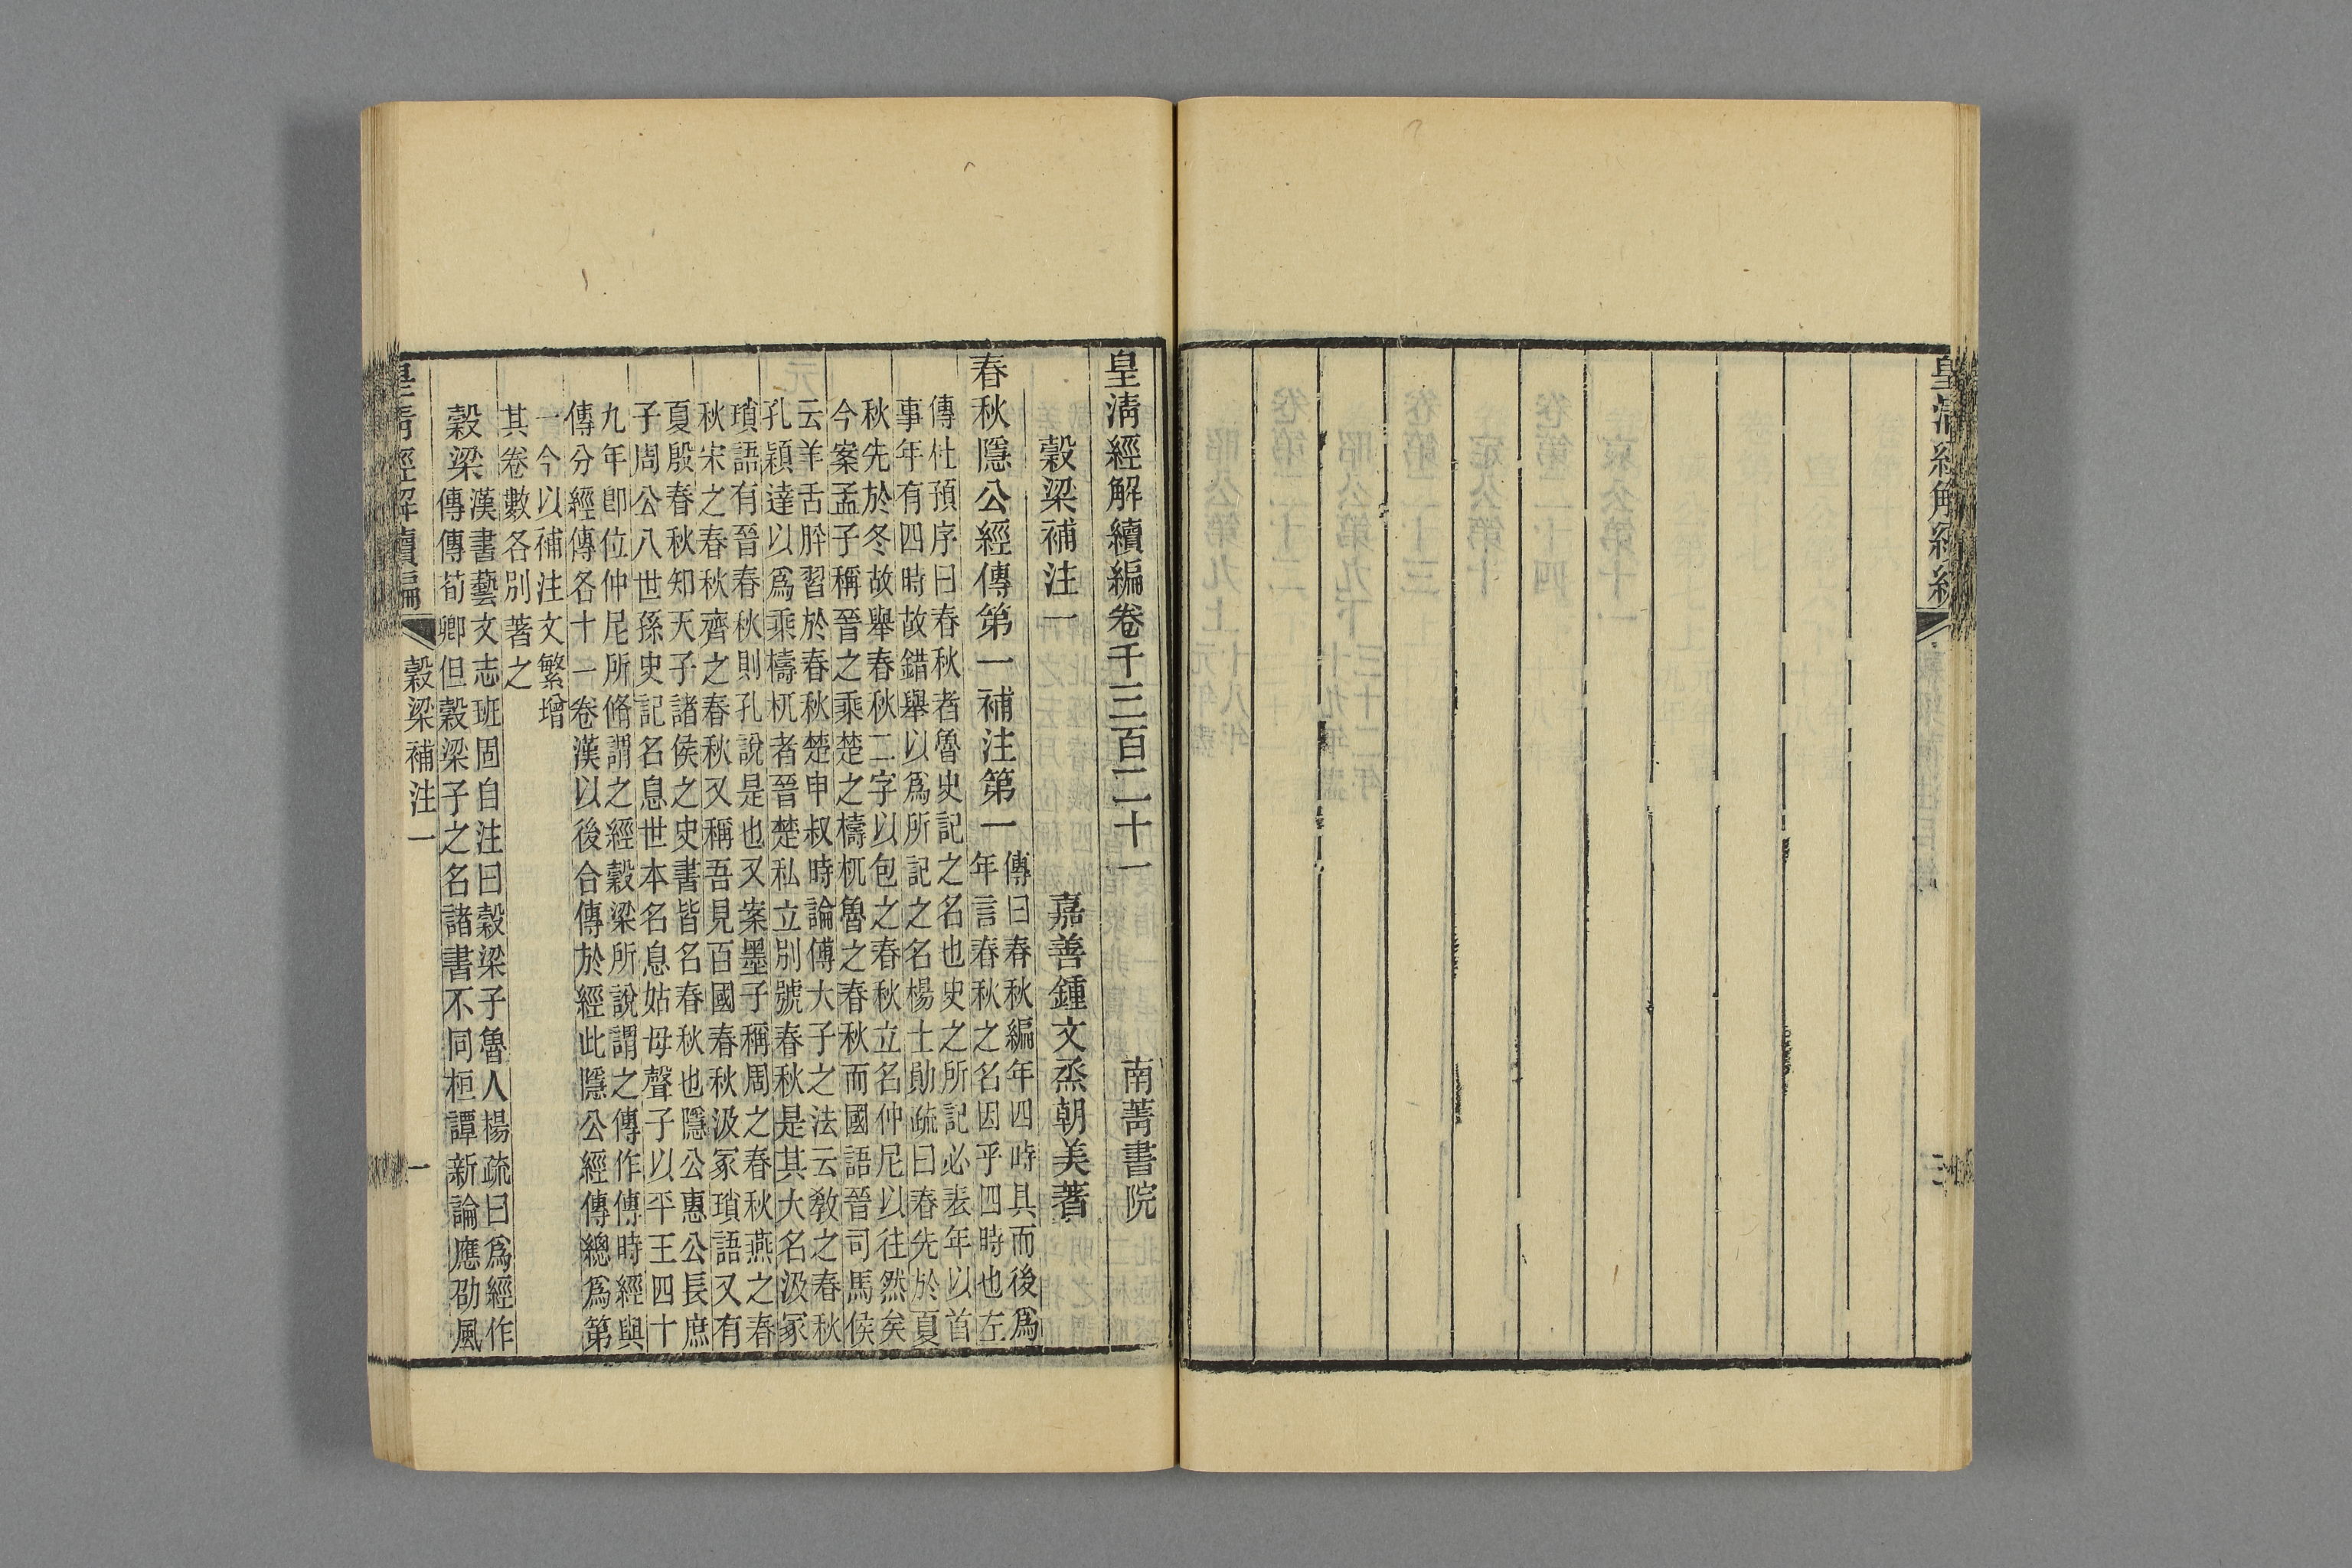 皇清經解續編卷千三百二十一 南菁書院
穀梁補注一 嘉善鍾文烝朝美著
春秋隱公經傳第一補注第一
傳曰春秋編年四時具而後爲
年言春秋之名因乎四時也左
傳杜預序曰春秋者魯史記之名也史之所記必表年以首
事年有四時故錯舉以爲所記之名楊士勛疏曰春先於夏
秋先於冬故舉春秋二字以包之春秋立名仲尼以往然矣
今案孟子稱晉之乘楚之檮杌魯之春秋而國語晉司馬侯
云羊舌肸習於春秋楚申叔時論傅大子之法云敎之春秋
孔穎達以爲乘檮杌者晉楚私立別號春秋是其大名汲冢
瑣語有晉春秋則孔說是也又案墨子稱周之春秋燕之春
秋宋之春秋齊之春秋又稱吾見百國春秋汲冢瑣語又有
夏殷春秋知天子諸侯之史書皆名春秋也隱公惠公長庶
子周公八世孫史記名息世本名息姑母聲子以平王四十
九年卽位仲尼所脩謂之經穀梁所說謂之傳作傳時經與
傳分經傳各十一卷漢以後合傳於經此隱公經傳總爲第
一今以補注文繁增
其卷數各別著之
穀梁
漢書藝文志班固自注曰穀梁子魯人楊疏曰爲經作
傳傳荀卿但穀梁子之名諸書不同桓譚新論應劭風
皇清經解續編 穀梁補注一 一